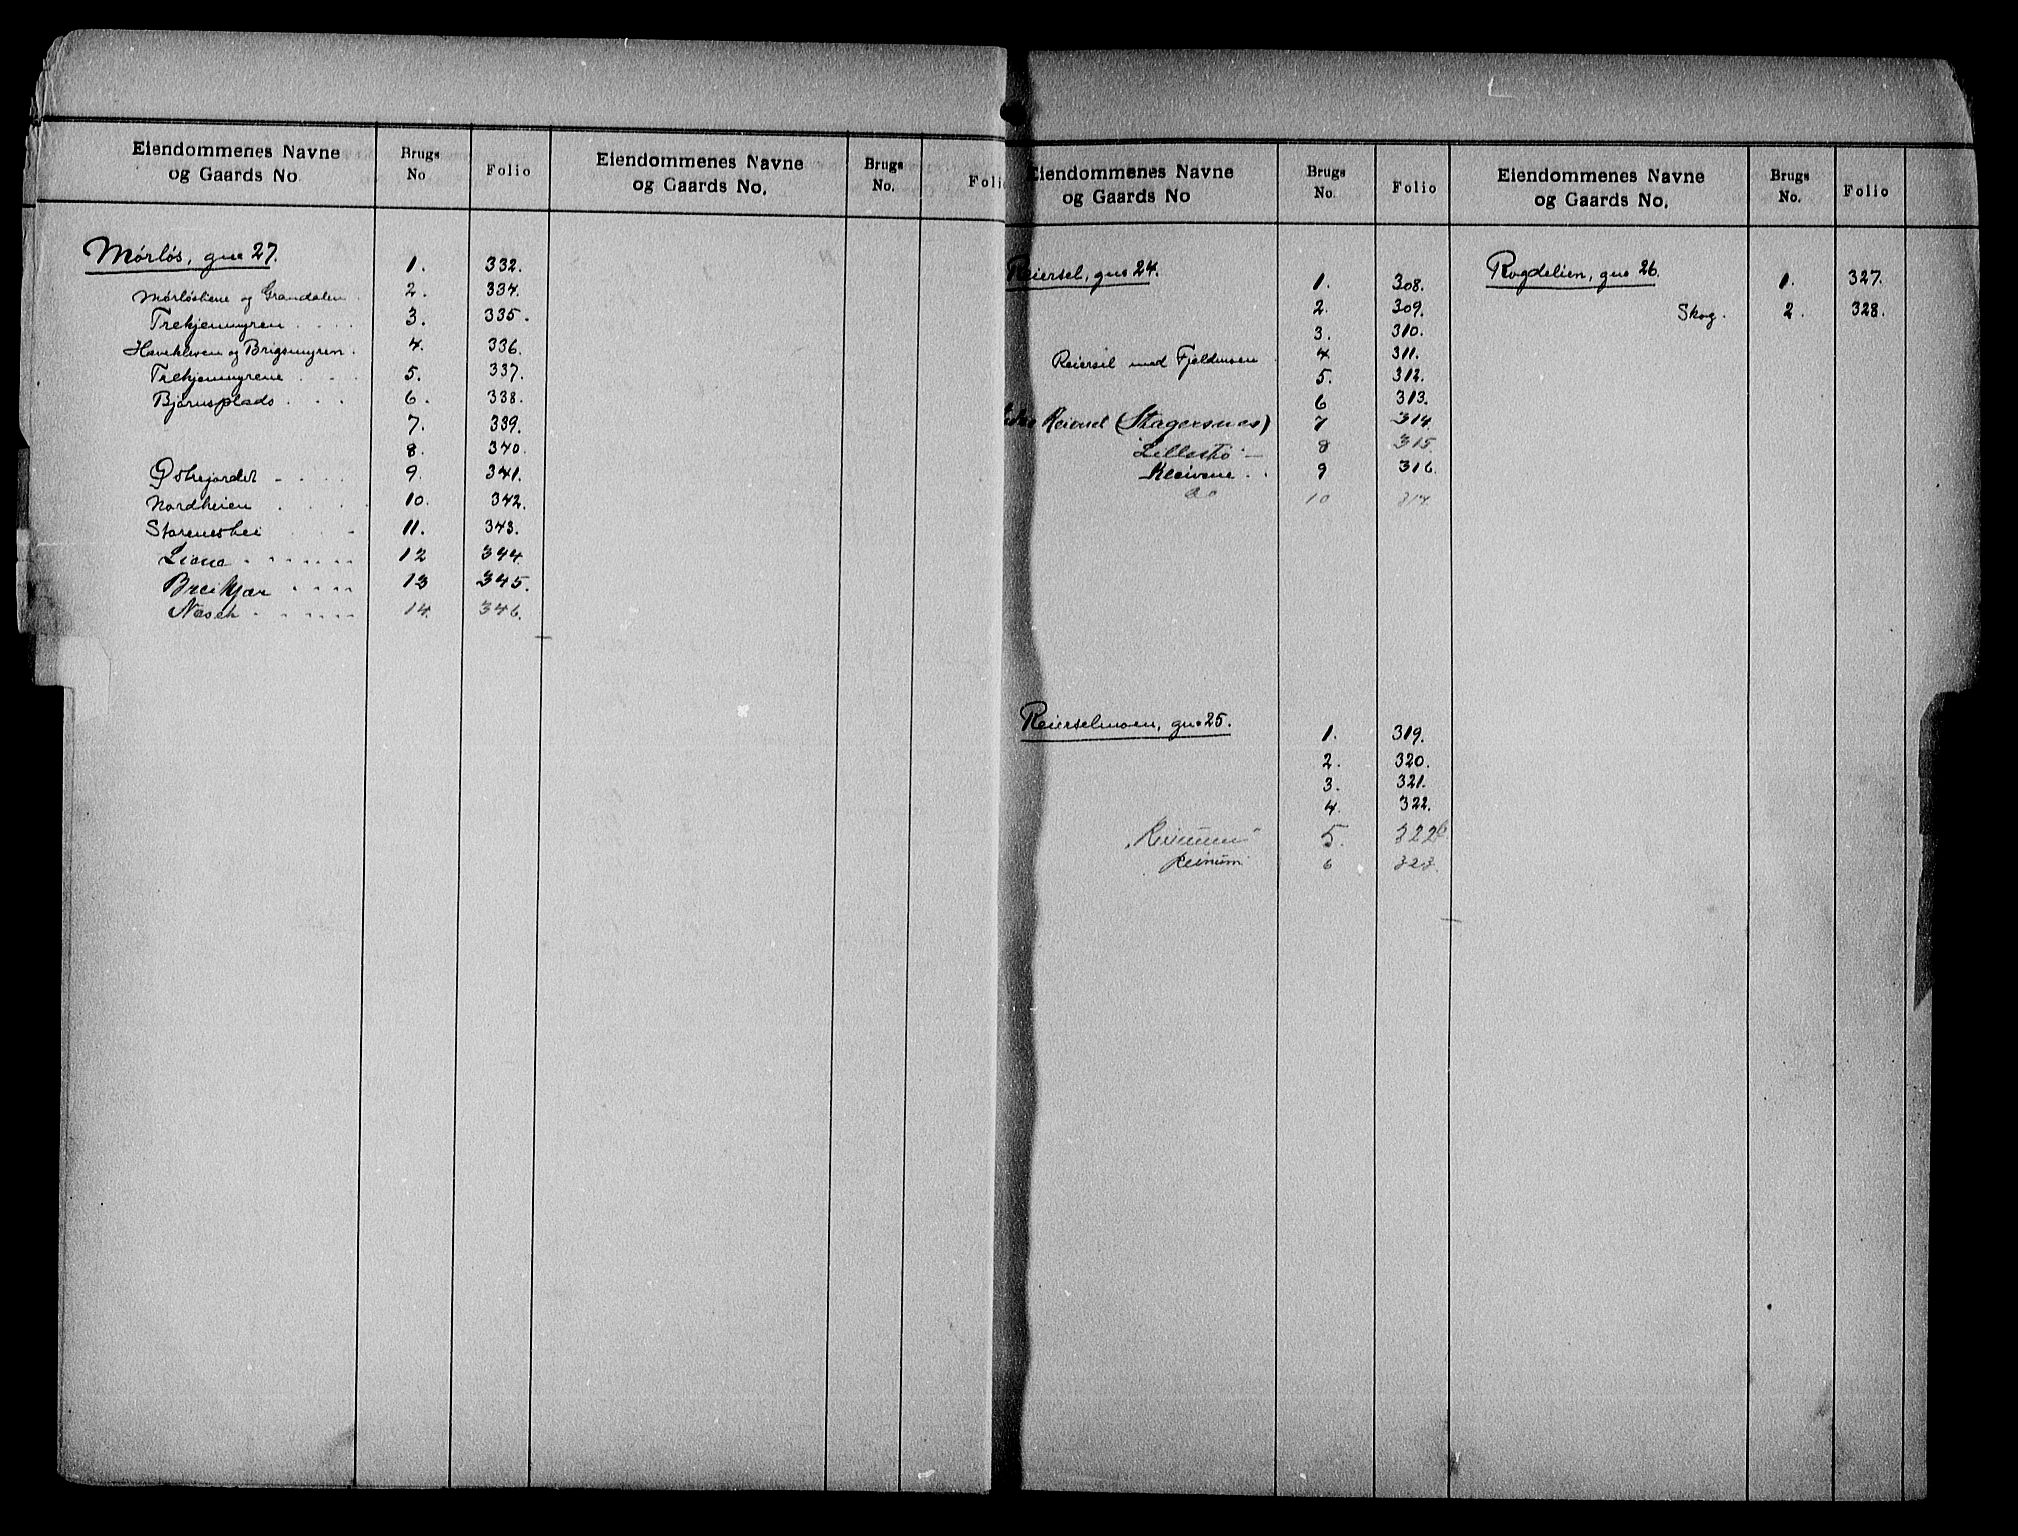 Eiendommenes Navne og Gaards No. Brugs No Folio Eiendommenes Navne og Gaards No. Brugs No. Folio
Mørløs, gno 27. 1. 332.
Mørløsliene og Grandalen 2. 334.
Trekjernmyren 3. 335.
Havekleven og Brigsmyren 4. 336.
Trekjernmyrene 5. 337.
Bjørnsplads 6. 338.
7. 339.
8. 340.
Østrejordet 9. 341.
Nordheien 10. 342.
Storeneshei 11. 343.
Liane 12 344.
Breikjær 13 345.
Næsek 14. 346.
Eiendommenes Navne og Gaards No Brugs No. Folio Eiendommenes Navne og Gaards No. Brugs No. Folio
Reiersel, gno 24. 1. 308.
2. 309.
3. 310.
Reiersel med Fjeldmoen 4 311.
5. 312.
6 313.
(Stagersnes) 7 314.
Lillestø 8 315.
Kleivene 9 316.
do 10 317.
Reierselmoen, gno 25. 1. 319.
2. 320.
3. 321.
4. 322.
5. 322b
Reinum 6 323.
Rogdelien, gno 26. 1. 327.
Skog. 2. 328.